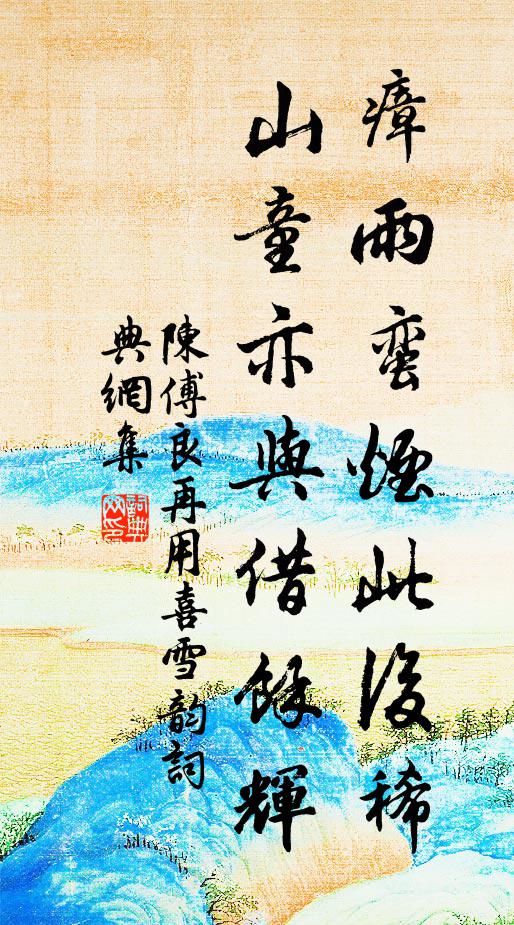 瘴雨蠻煙此後稀
山童亦與借餘輝
陳傅良再用喜雪韵詞
典網集